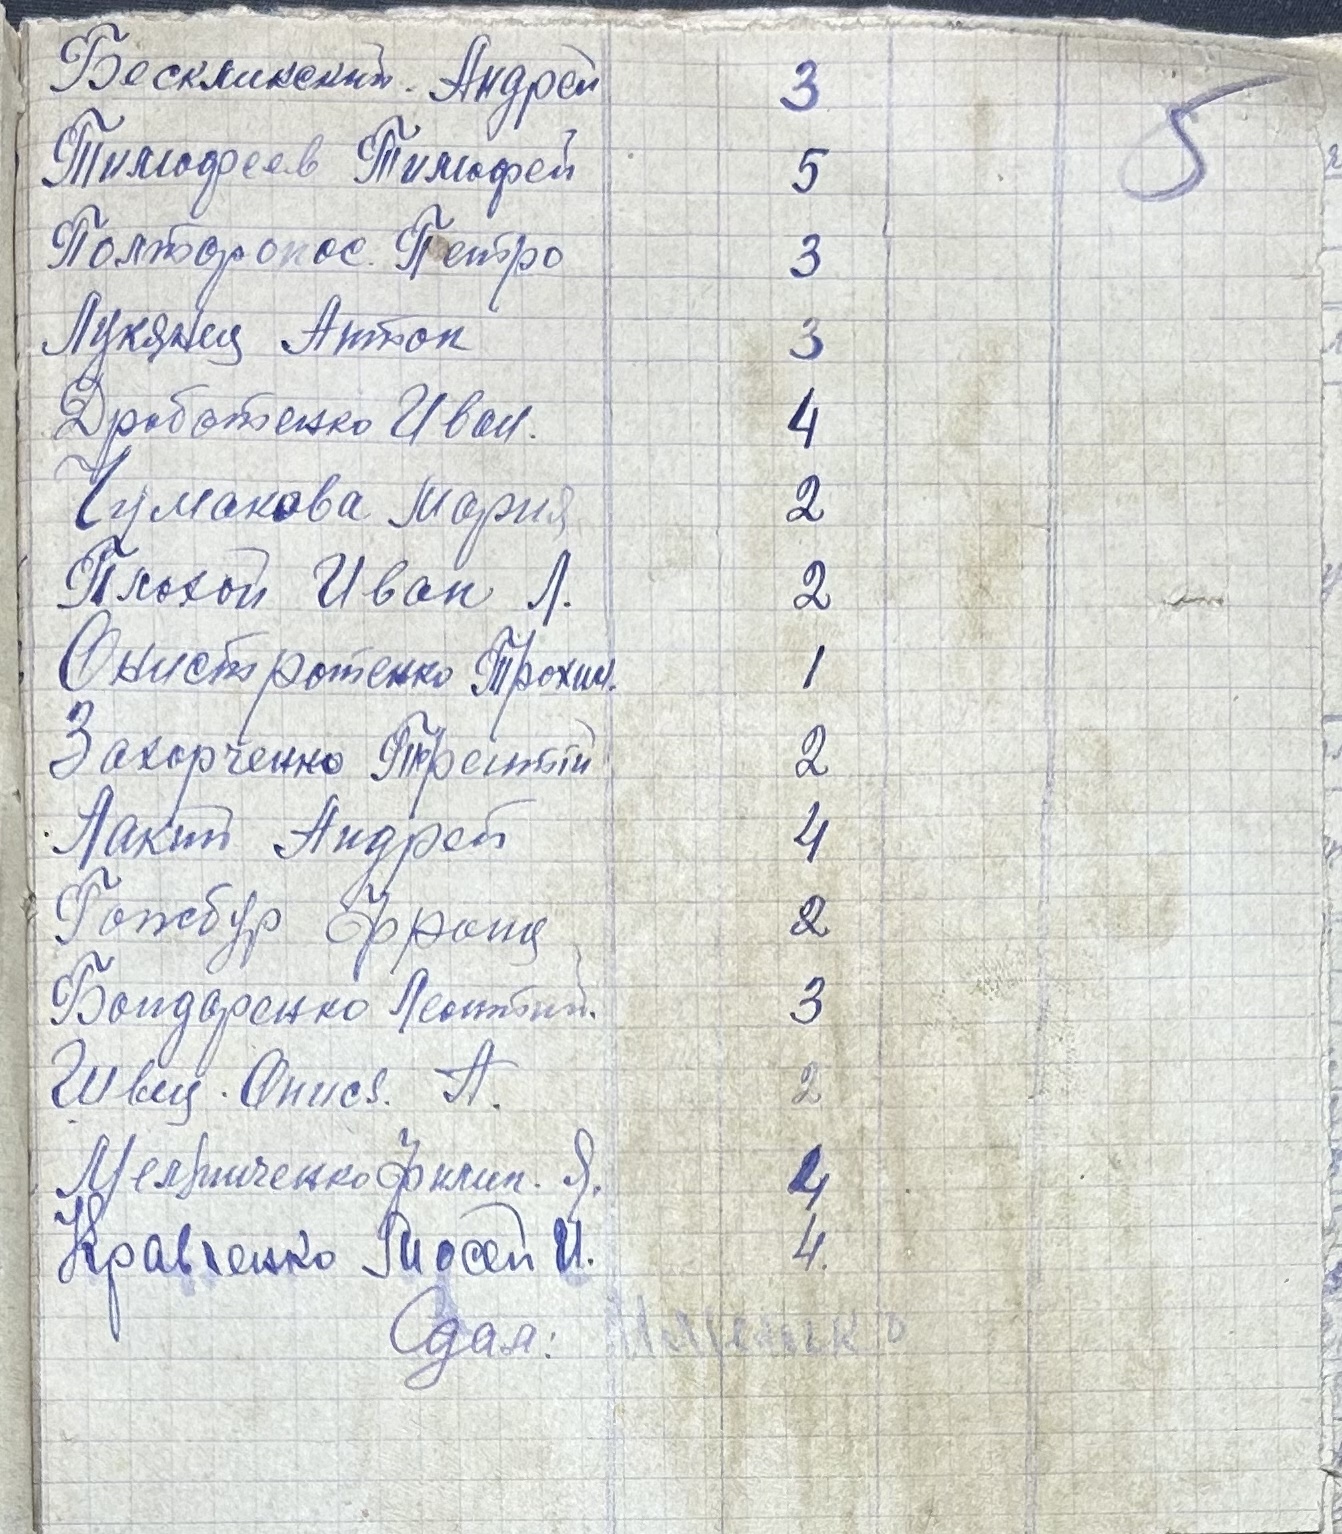 Бесклинский. Андрей 3
5
Тимофеев Тимофей 5
Полторопос. Петро 3
Лукянец Антон 3
Дроботенко Иван. 4
Чумакова Мария 2
Плохой Иван Л. 2
Онистротенко Трохим. 1
Захорченко 2
Лакий Андрей 4
Гожбур Франц 2
Бондаренко Леонтий. 3
Швец. Онися. А. 2
Мельниченко Филип. Я. 4
Кравченко Мосей И. 4.
Сдал: